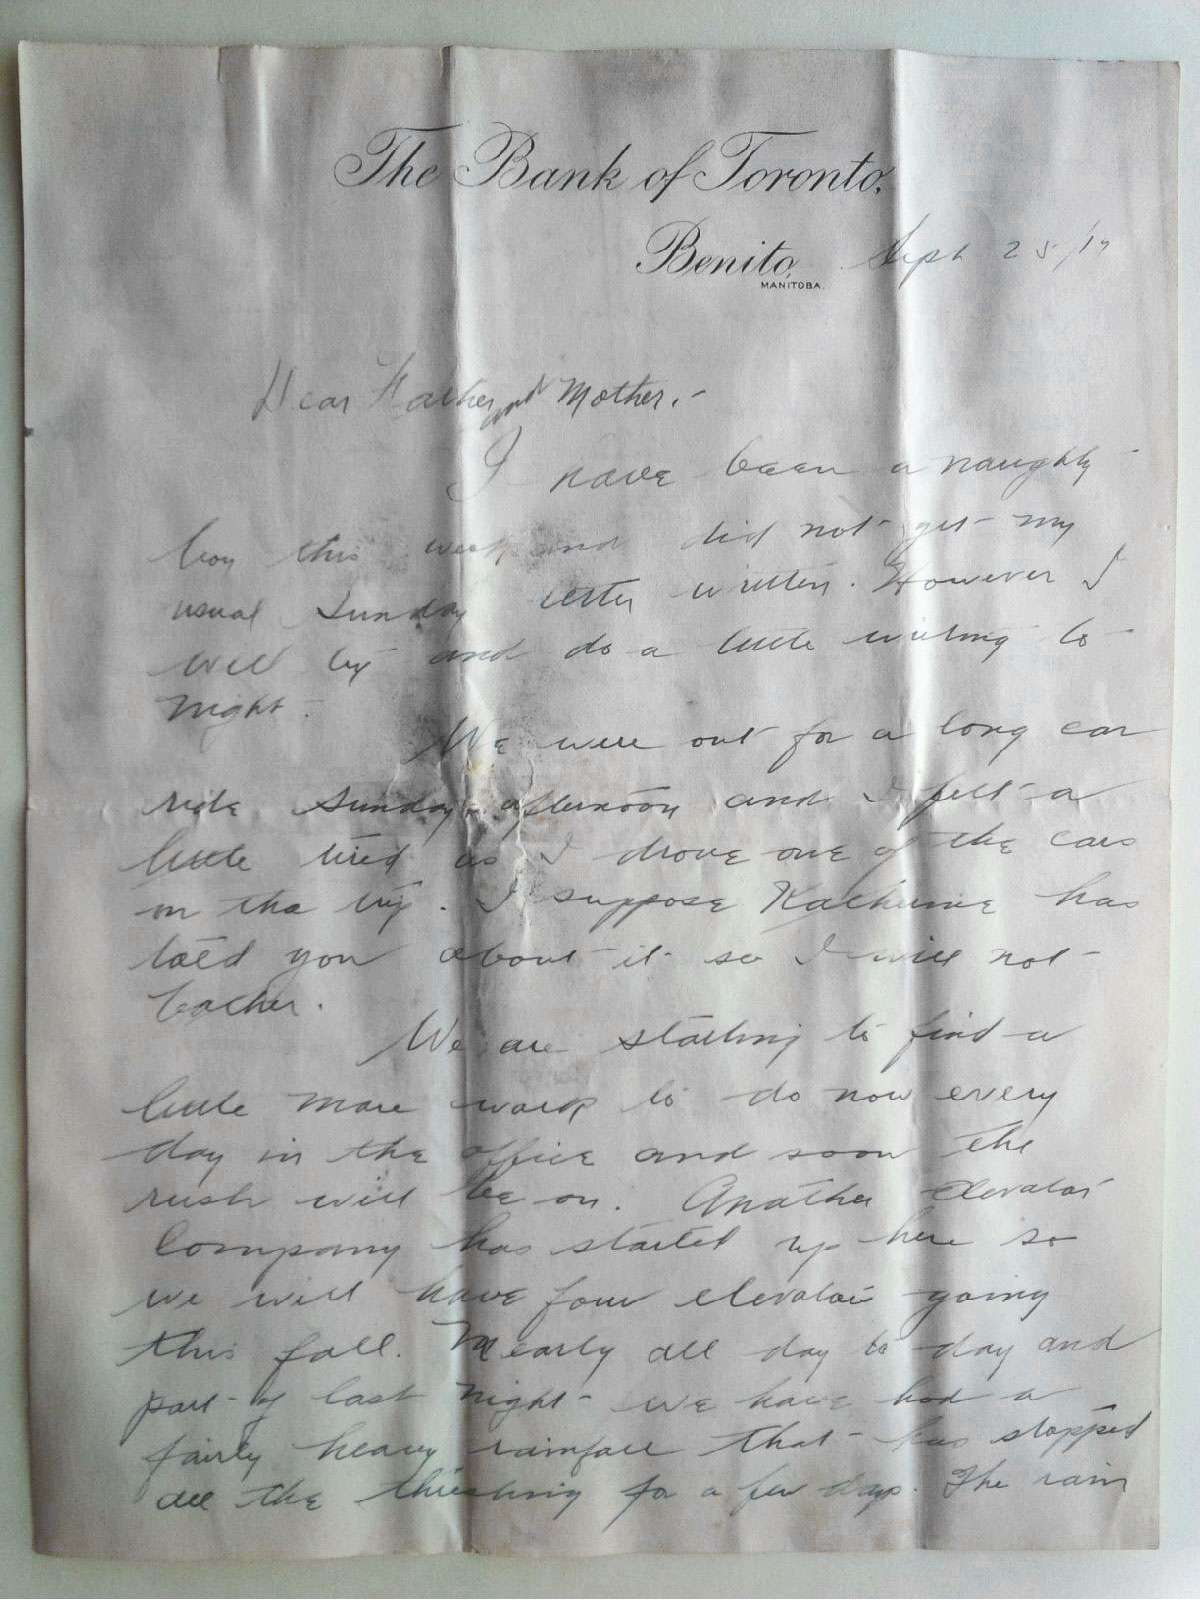 The Bank of Toronto,
Benito, Sept 25/17
MANITOBA.
Dear Father and Mother.-
I have been a naughty
boy this week and did not get my
usual Sunday letter written. However I
will try and do a little writing to
night.
We were out for a long car
ride Sunday afternoon and I felt a
little tired as I drove one of the cars
on the trip. I suppose Katherine has
told you about it so I will not
bother.
We are starting to find a
little more work to do now every
day in the office and soon the
rush will be on. Another elevator
Company has started up here so
we will have four elevators going
this fall. Nearly all day to day and
part of last night we have had a
fairly heavy rainfall that has stopped
all the threshing for a few days. The rain